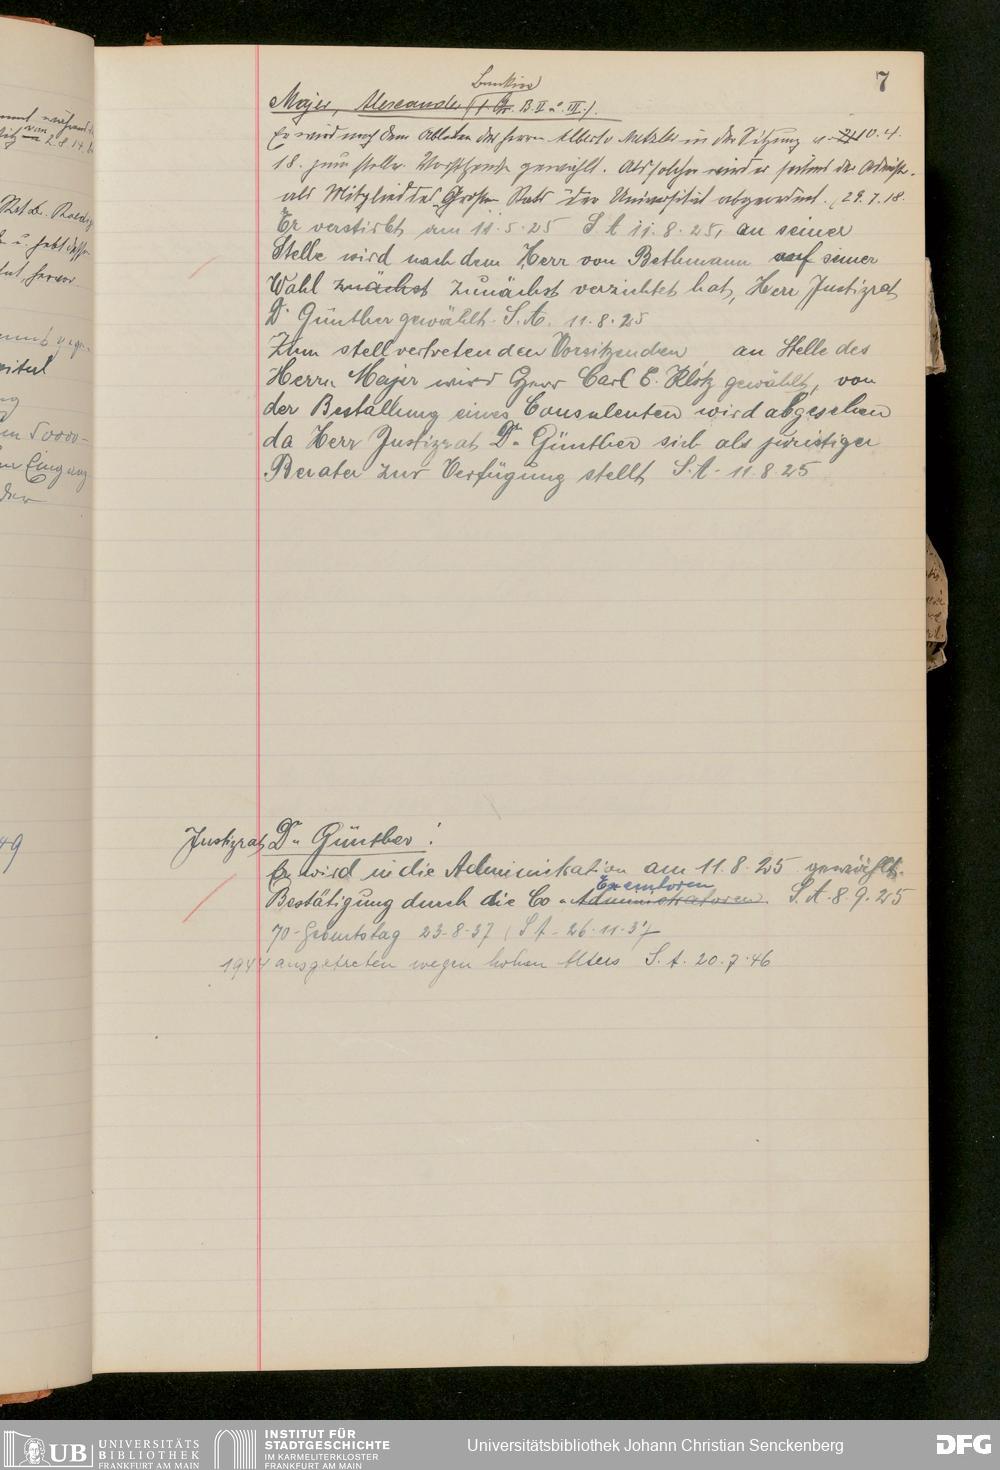 7
Bankier
Majer, Alexander (s. Gr. B. II u. III.)
Er wird nach dem Ableben des Herrn Alberto Metzler in der Sitzung v. 10.4.
18. zum stellv. Vorsitzenden gewählt. Als solcher wird er seitens der Administr.
als Mitglied des Großen Rats der Universität abgeordnet. (29.7.18.
Er verstirbt am 11.5.25 S.A. 11.8.25, an seiner
Stelle wird nach dem Herr von Bethmann auf seiner
Wahl zunächst zunächst verzichtet hat, Herr Justizrat
Dr Günther gewählt. S.A. 11.8.25
Zum stellvertretenden Vorsitzenden, an Stelle des
Herrn Majer wird Herr Carl E. Klotz gewählt, von
der Bestallung eines Consulenten wird abgesehen
da Herr Justizrat Dr. Günther sich als juristiger
Berater zur Verfügung stellt S.A. 11.8.25
Justizrat Dr. Günther!
Er wird in die Administration am 11.8.25 gewählt.
Exemtoren
Bestätigung durch die Co-Administratoren. S.A. 8.9.25
70-Geburtstag 23.8.37 (S.A. 26.11.37
1944 ausgetreten wegen hohen Alters S.A. 20.7.46
49
UB UNIVERSITÄTS
BIBLIOTHEK
FRANKFURT AM MAIN
INSTITUT FÜR
STADTGESCHICHTE
IM KARMELITERKLOSTER
FRANKFURT AM MAIN
Universitätsbibliothek Johann Christian Senckenberg
DFG